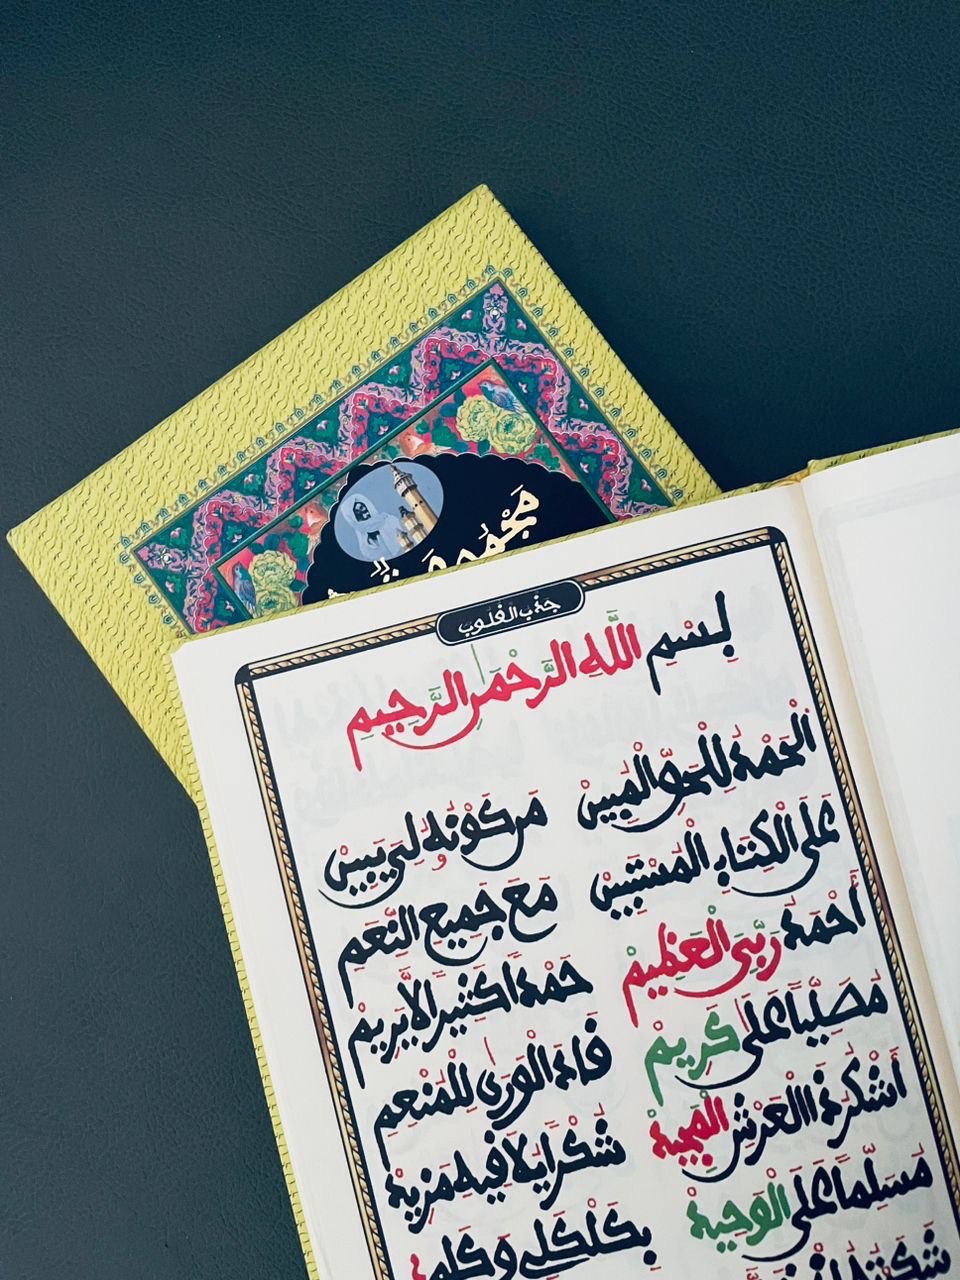 مَجْمُوعَة
جَذْبُ الْقُلُوبِ
بِسْمِ اللَّهِ الرَّحْمَنِ الرَّحِيمِ
الْحَمْدُ لِلْحَقِّ الْمُبِينْ مَن كَوْنُهُ لِي يَبِينْ
عَلَى الْكِتَابِ الْمُسْتَبِينْ مَعْ جَمِيعِ النِّعَمِ
أَحْمَدُ رَبِّيَ الْعَظِيمْ حَمْدًا كَثِيرًا لَا يَرِيمْ
مُصَلِّيًا عَلَى كَرِيمْ قَادَ الْوَرَى لِلْمُنْعِمِ
أَشْكُرُ ذَا الْعَرْشِ الْمَجِيدْ شُكْرًا بِلَا فِيهِ مَزِيدْ
مُسَلِّمًا عَلَى الْوَحِيدْ بِكَلْكَلِي وَكَلِمِ